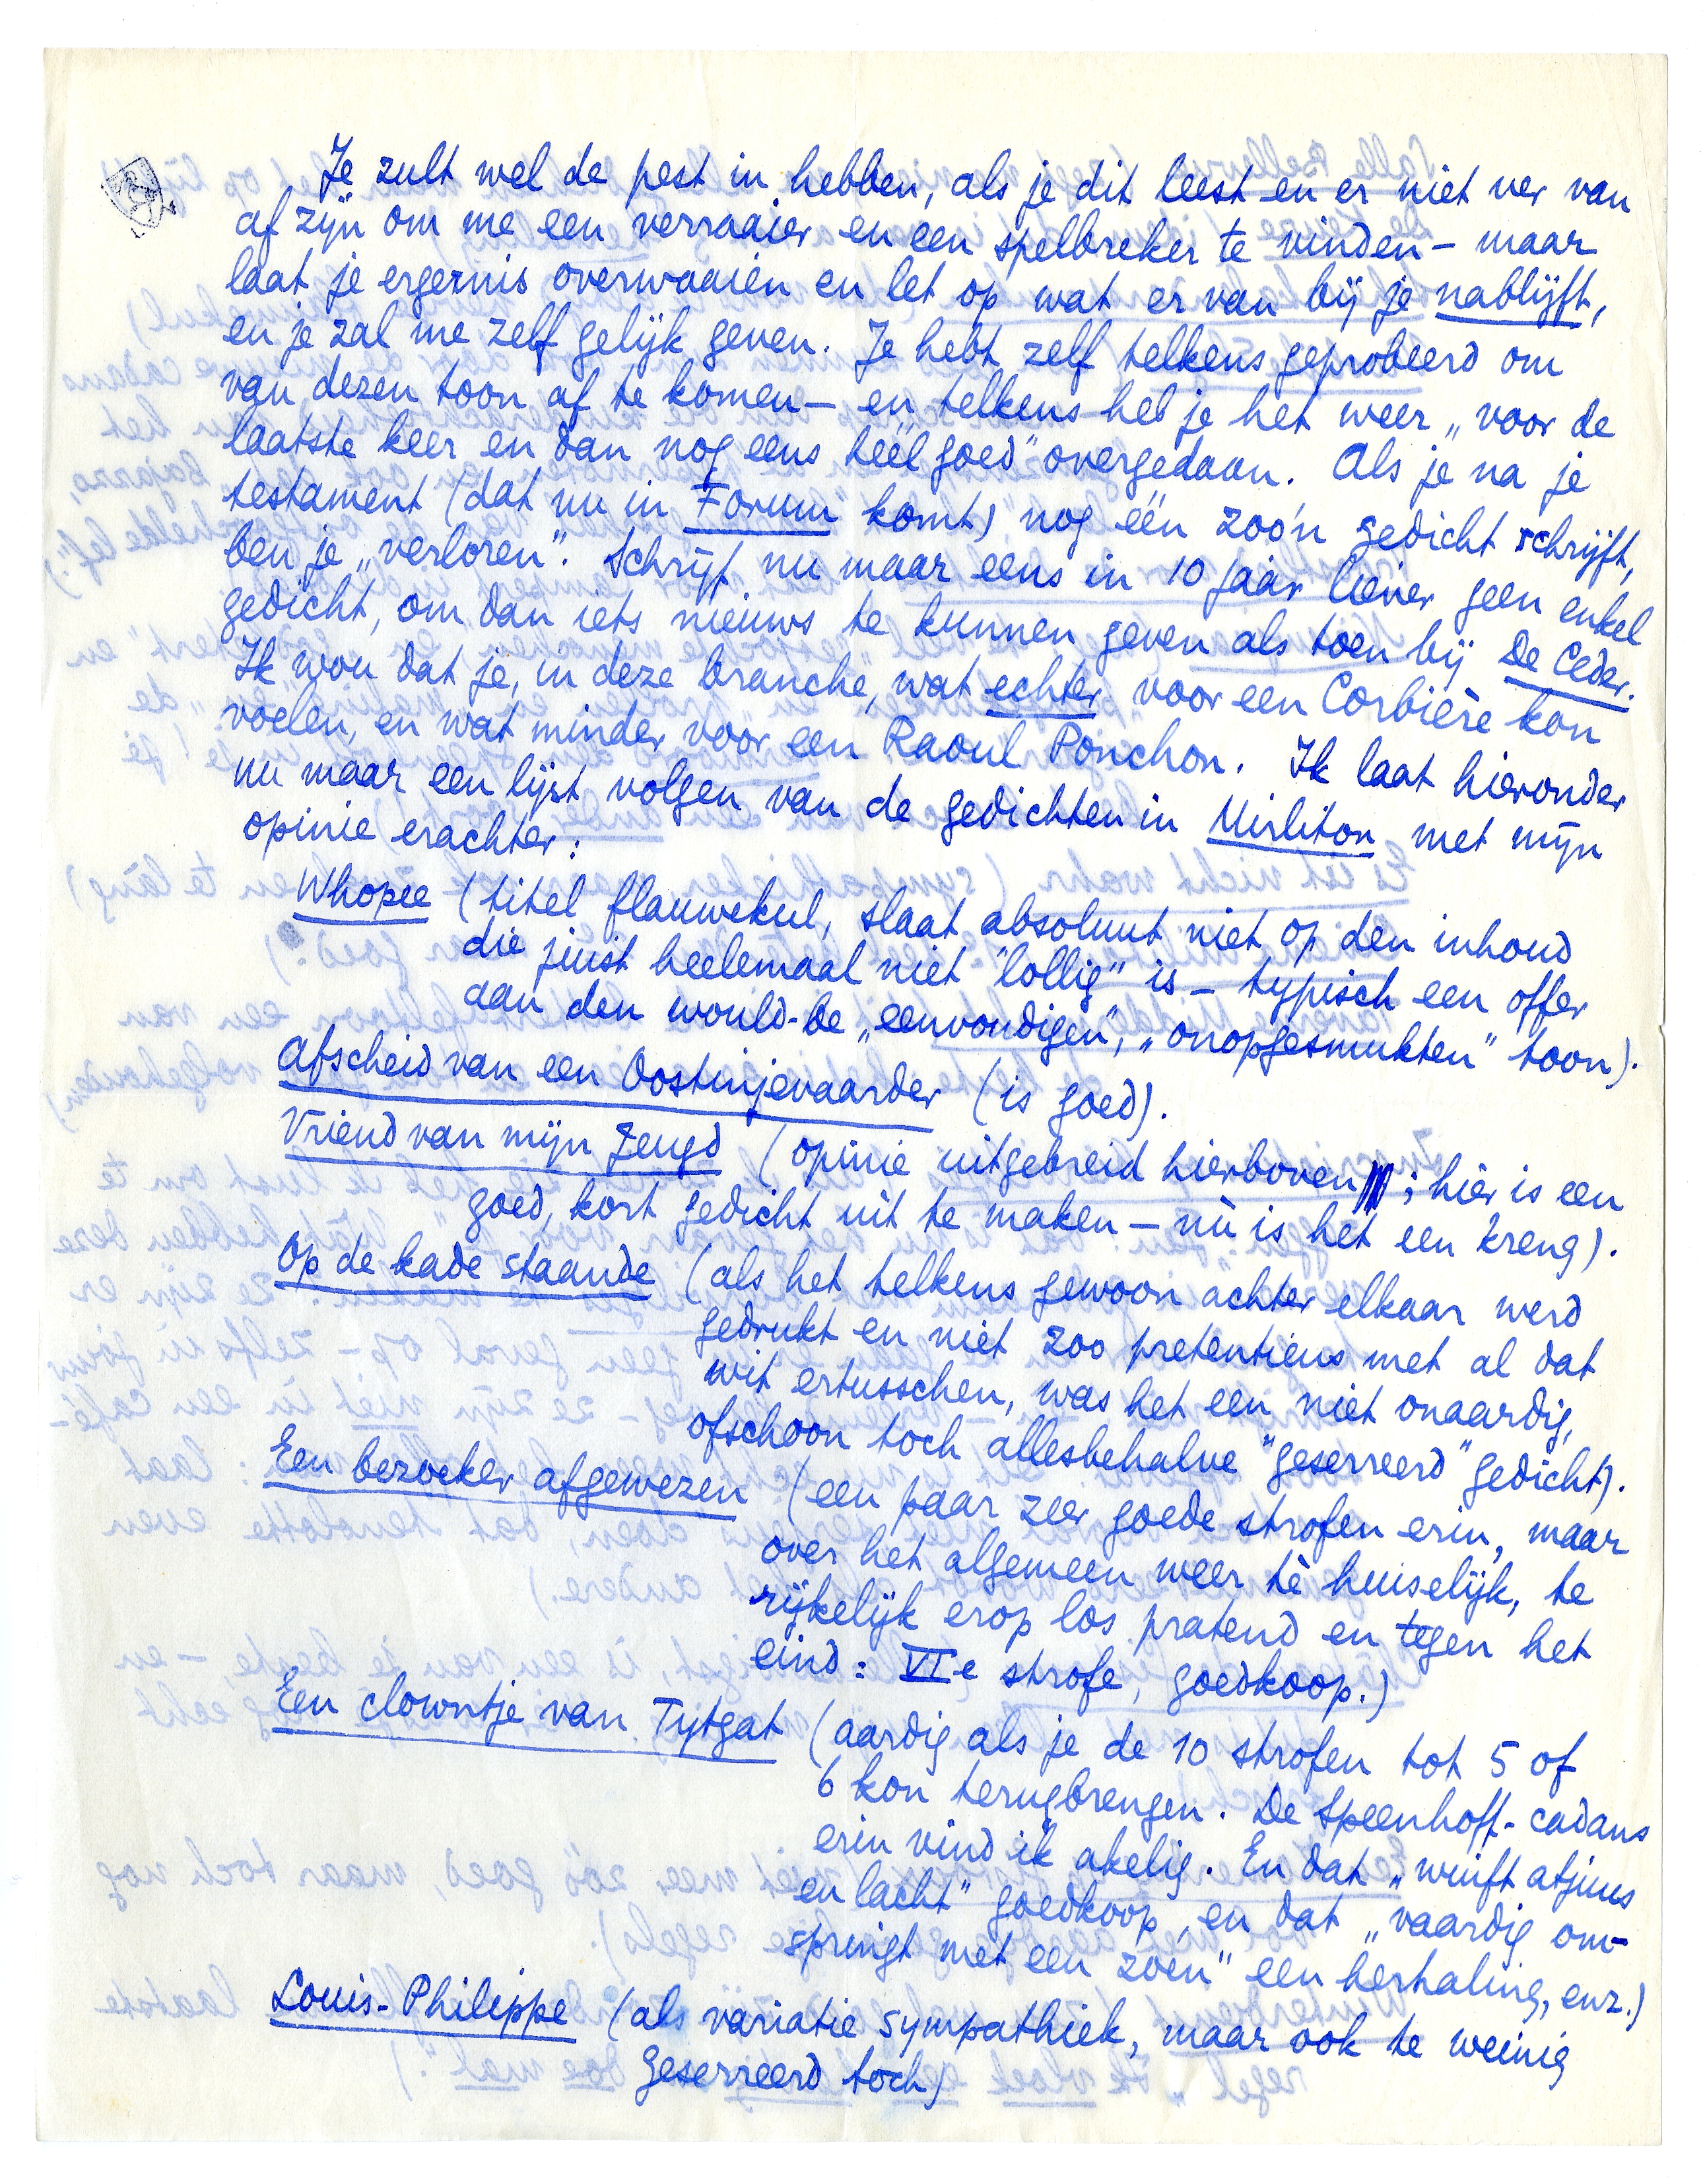 Je zult wel de pest in hebben, als je dit leest en er niet ver van
af zijn om me een verraaier en een spelbreker te vinden – maar
laat je ergernis overwaaien en let op wat er van bij je nablijft,
en je zal me zelf gelijk geven. Je hebt zelf telkens geprobeerd om
van dezen toon af te komen – en telkens heb je het weer „voor de
laatste keer en dan nog eens héél goed” overgedaan. Als je na je
testament (dat nu in Forum komt) nog één zoo'n gedicht schrijft,
ben je „verloren”. Schrijf nu maar eens in 10 jaar liever geen enkel
gedicht, om dan iets nieuws te kunnen geven als toen bij De Ceder.
Ik wou dat je, in deze branche, wat echter voor een Corbière kon
voelen, en wat minder voor een Raoul Ponchon. Ik laat hieronder
nu maar een lijst volgen van de gedichten in Mirliton met mijn
opinie erachter:
Whopee (titel flauwekul, slaat absoluut niet op den inhoud
die juist heelemaal niet "lollig" is – typisch een offer
aan den would-be „eenvoudigen”, „onopgesmukten” toon).
Afscheid van een Oostinjevaarder (is goed).
Vriend van mijn Jeugd (opinie uitgebreid hierboven; hier is een
goed, kort gedicht uit te maken – nù is het een kreng).
Op de kade staande (als het telkens gewoon achter elkaar werd
gedrukt en niet zoo pretentieus met al dat
wit ertusschen, was het een niet onaardig,
ofschoon toch allesbehalve "geserreerd" gedicht).
Een bezoeker afgewezen (een paar zeer goede strofen erin, maar
over het algemeen weer tè huiselijk, te
rijkelijk erop los pratend en tegen het
eind: VIe strofe, goedkoop.)
Een clowntje van Tytgat (aardig als je de 10 strofen tot 5 of
6 kon terugbrengen. De Speenhoff-cadans
erin vind ik akelig. En dat „wuift atjuus
en lacht” goedkoop, en dat „vaardig om-
springt met een zoen” een herhaling, enz.)
Louis-Philippe (als variatie sympathiek, maar ook te weinig
geserreerd toch)